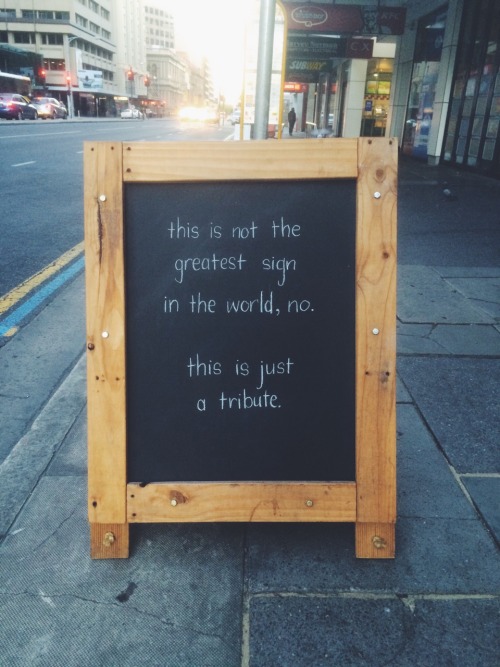 this is not the
greatest sign
in the world, no.
this is just
a tribute.
SUBWAY